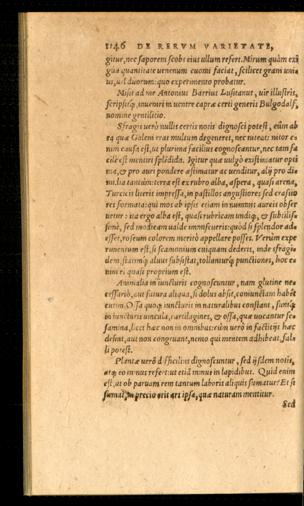 1146 DE RERVM VARIETATE,
gitur, nec saporem scobs eius ullum refert. Mirum quàm exi
gua quantitate uenenum euomi faciat, scilicet grani unius
us, uel duorum: quo experimento probatur.
Misit ad me Antonius Barrius Lusitanus, uir illustris,
scripsitq́, inueniri in uentre capræ certi generis Bulgodalf,
nomine gentilitio.
Sfragis uerò nullis certis notis dignosci potest, cùm ab
ea quæ Golem
num causa est, ut plurima facilius cognoscantur, nec tam fa
cilè est mentiri splēdida. Igitur quæ uulgò existimatur opti
ma, & pro auri pondere æstimatur ac uenditur, alij pro di-
uina tantùm: terra est ex rubro alba, aspera, quasi arena,
Turcicis literis impressa, in pastillos angustiores sed crassio
res formata: qui mos ab ipsis etiam in nummis aureis obser
uatur: ita ergo alba est, quasi rubricam undiq́, & subtilis-
simè, sed modicam ualde immiscueris: quòd si splendor ad-
esset, roseum colorem meritò appellare posses. Verùm expe
rimentum est, si scammonium cuiquam dederit, inde sfragi-
dem, statimq́ aluus subsistat, tollanturq́ punctiones, hoc e-
nim ei quàm proprium est.
Animalia in iuncturis cognoscuntur, nam glutine ne-
cessariò, aut sutura aliqua, si dolus absit, coniunctam habēt
cutem. Ossa quoq́ iuncturis in naturalibus constant, suntq́
in iuncturis uincula, cartilagines, & ossa, quæ uocantur se-
samina, licet hæc non in omnibus: cùm uerò in factitijs hæc
desint, aut non congruant, nemo qui mentem adhibeat, fal-
li poterit.
Plantæ uerò difficilius dignoscuntur, sed ijsdem notis,
atq́ eo minus refert: ut etiā minus in lapidibus. Quid enim
est, ut ob paruam rem tantum laboris aliquis sumatur? Et si
sumat, in precio erit ars ipsa, quæ naturam mentitur.
Sed